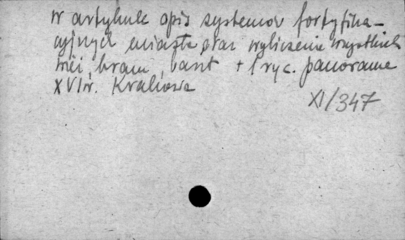 w artykule opis systemów fortyfika-
cyjnych miasta oraz wyliczenie wszystkich
bram, baszt + 1 ryc. panorama
XVI w. Krakowa
XI/347